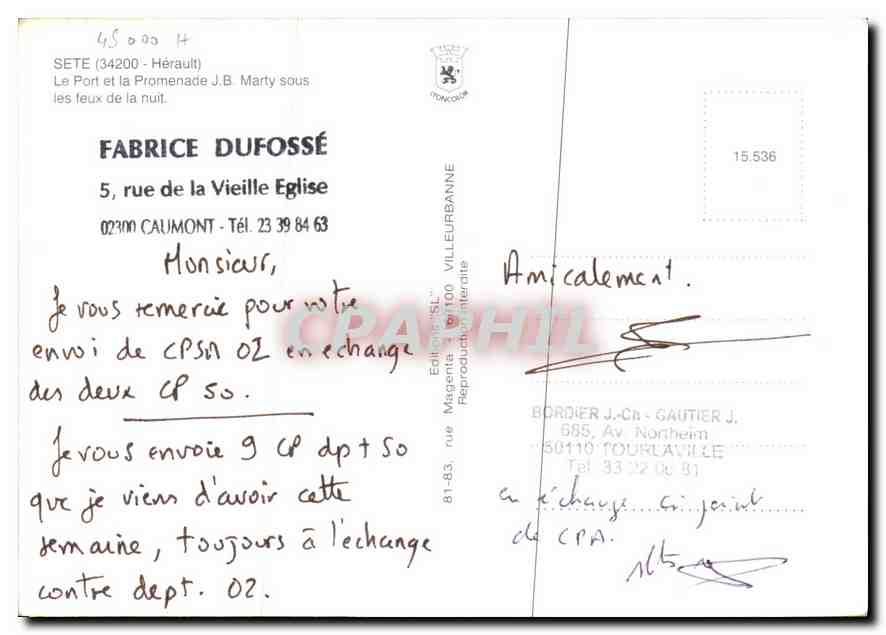 45000 H
SETE (34200 - Hérault)
Le Port et la Promenade J.B. Marty sous
les feux de la nuit.
FABRICE DUFOSSÉ
5, rue de la Vieille Eglise
02300 CAUMONT - Tél. 23 39 84 63
Monsieur,
Je vous remercie pour votre
envoi de CPSM 02 en echange
des deux CP 50.
Je vous envoie 9 CP dpt 50
que je viens d'avoir cette
semaine, toujours à l'echange
contre dept. 02.
LYONCOLOR
Editions "SL"
81-83, rue Magenta - 69100 VILLEURBANNE
Reproduction interdite
CPAPHIL
15.536
Amicalement.
BORDIER J.-Ch - GAUTIER J.
685, Av. Northeim
50110 TOURLAVILLE
Tel 33 22 06 81
en échange ci joint
de CPA.